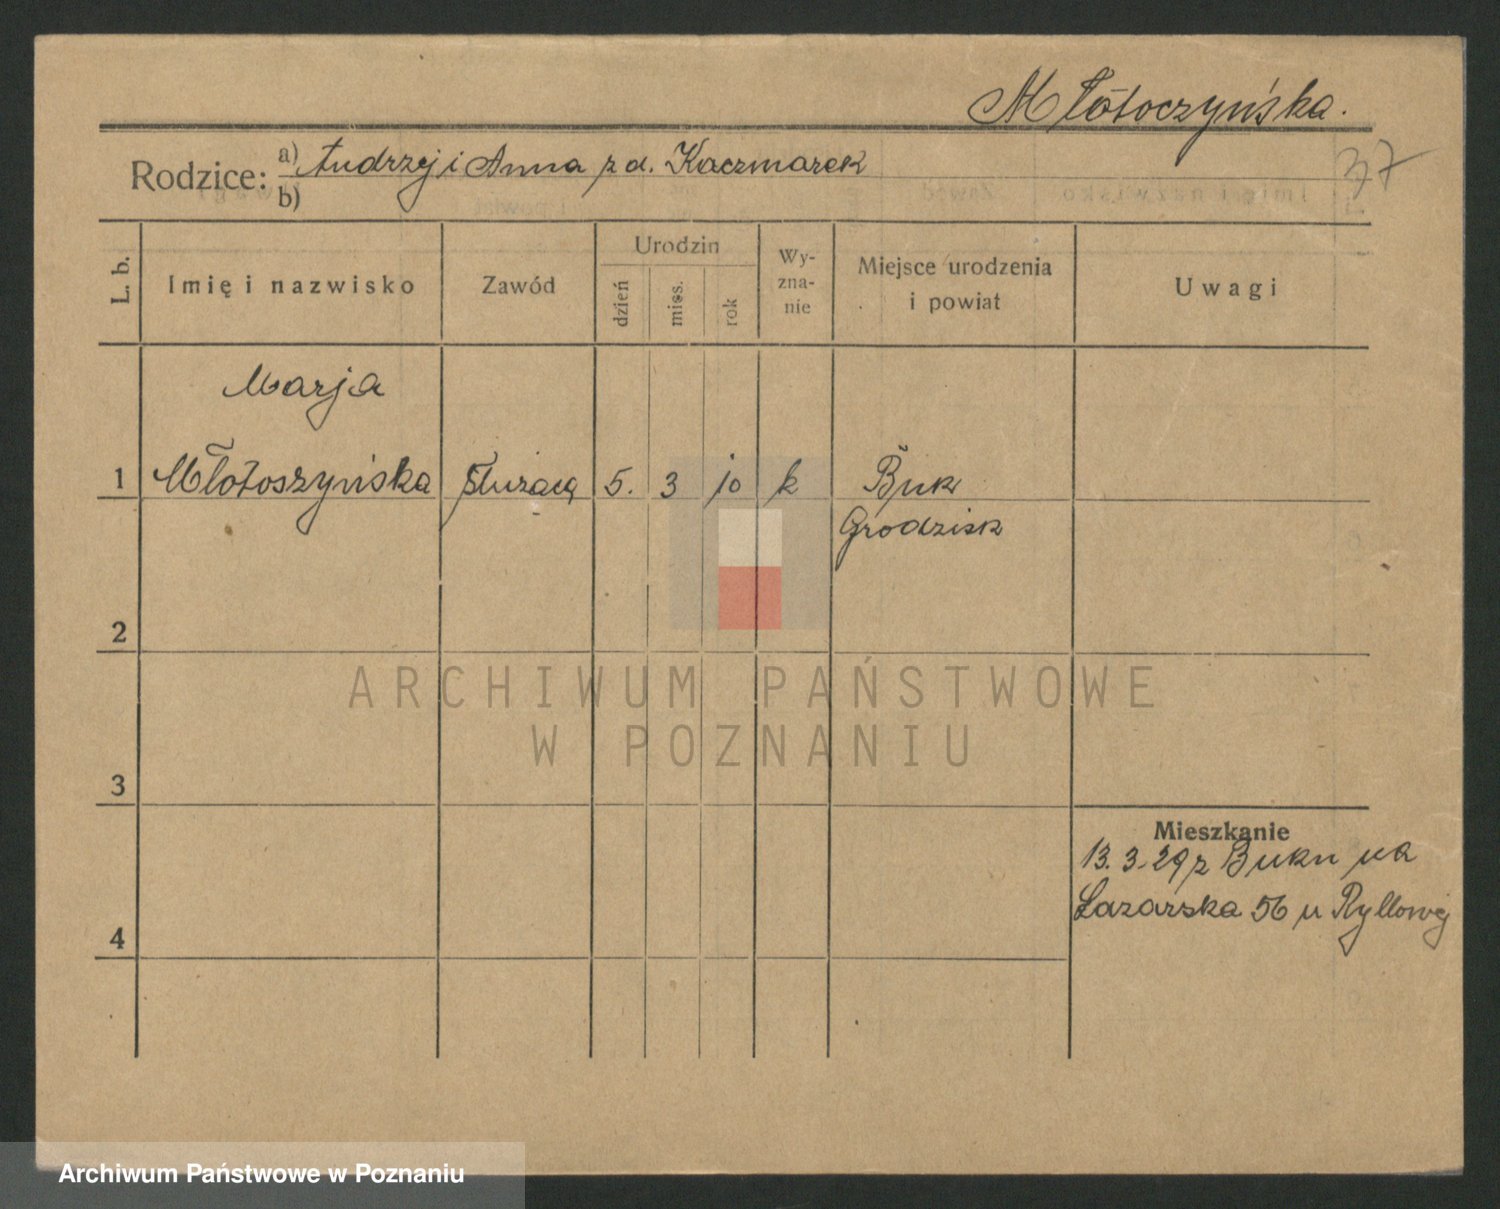 Młotoczyńska.
Rodzice: a) Andrzej i Anna z d. Kaczmarek
b)
37
L. b.
Imię i nazwisko
Zawód
Urodzin
dzień
mies.
rok
Wy-
zna-
nie
Miejsce urodzenia
i powiat
Uwagi
Marja
1 Młotoszyńska służącą 5. 3 10 k Buk
Grodzisk
2
3
4
Mieszkanie
13.3.29 z Buku na
Łazarska 56 u Ryllowej
ARCHIWUM PAŃSTWOWE
W POZNANIU
Archiwum Państwowe w Poznaniu